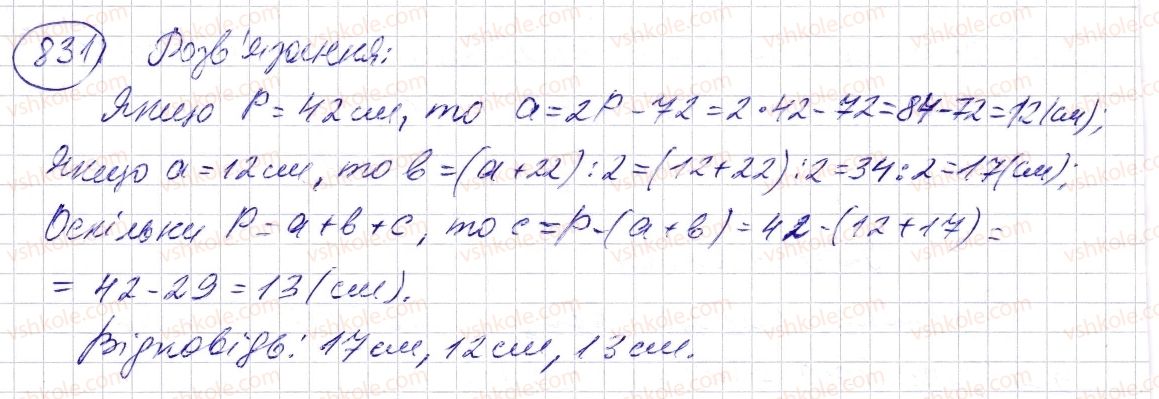 831) Розв'язання:
Якщо P = 42 см, то a = 2P - 72 = 2 · 42 - 72 = 84 - 72 = 12 (см);
Якщо a = 12 см, то в = (a + 22) : 2 = (12 + 22) : 2 = 34 : 2 = 17 (см);
Оскільки P = a + в + c, то c = P - (a + в) = 42 - (12 + 17) =
= 42 - 29 = 13 (см).
Відповідь: 17 см, 12 см, 13 см.